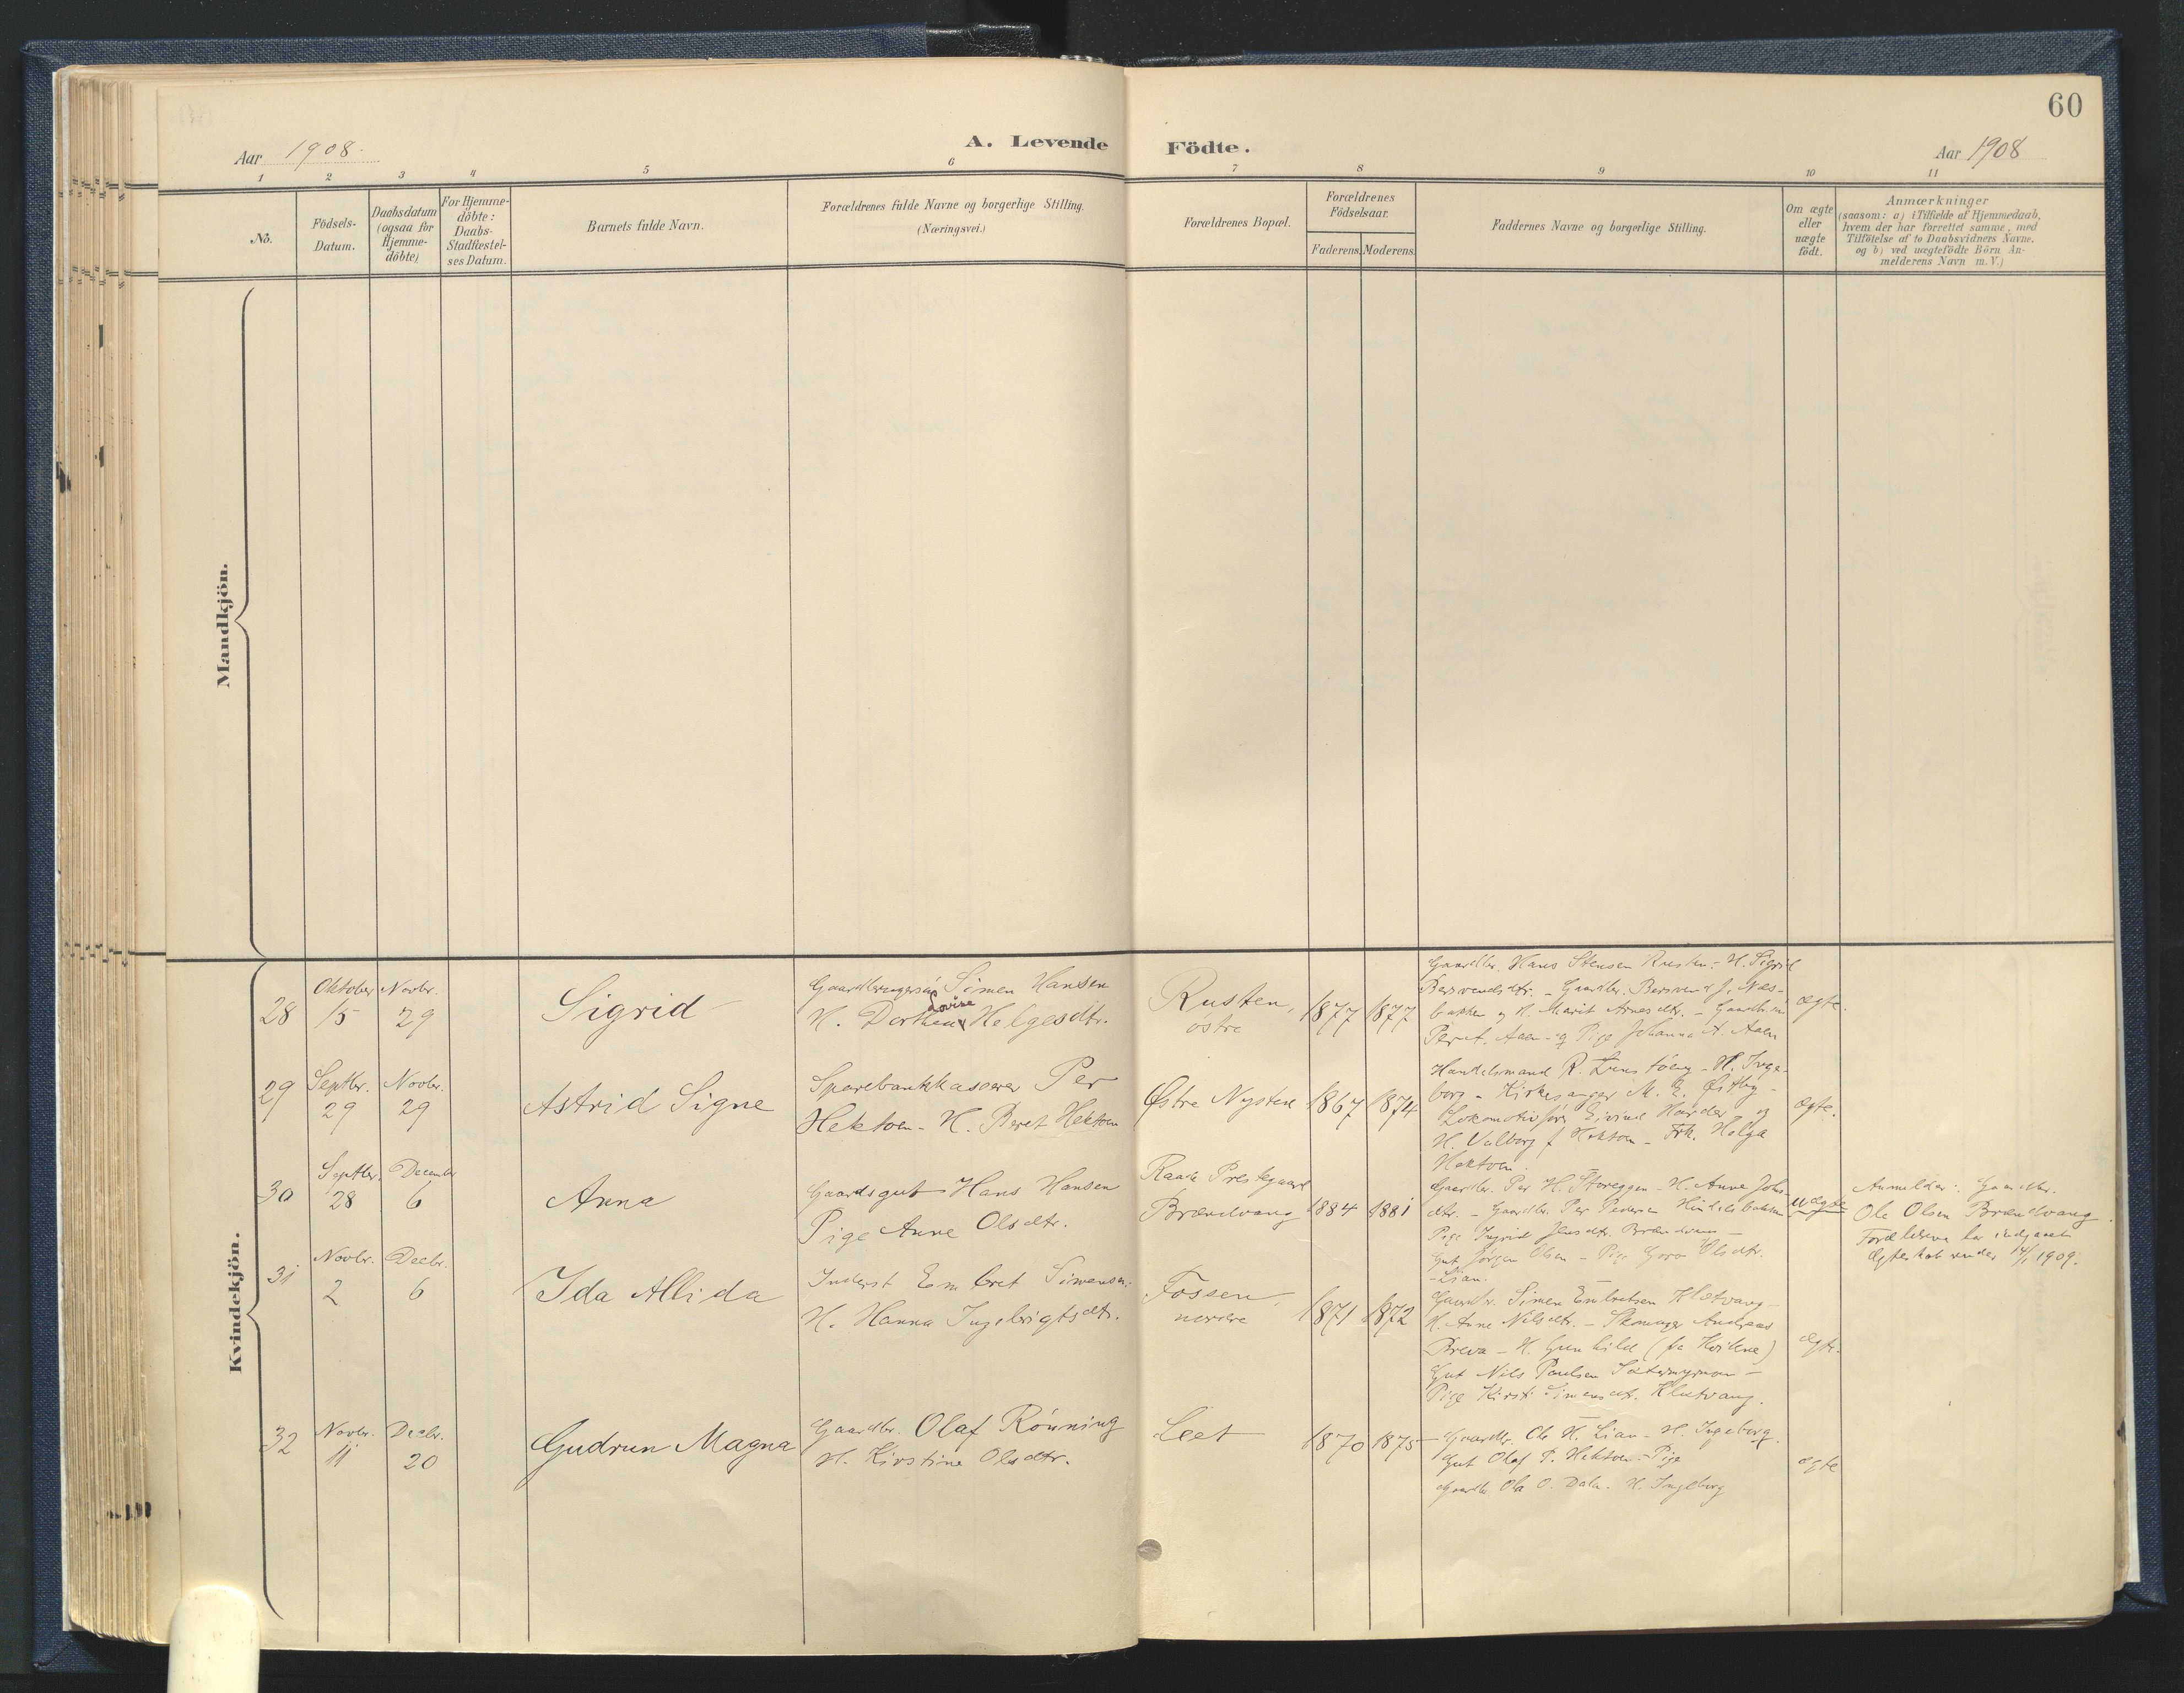 60
Aar 1908.
A. Levende Födte.
Aar 1908
1 2 3 4 5 6 7 8 9 10 11
No.
Födsels-
Datum.
Daabsdatum
(ogsaa for
Hjemme-
döbte)
For Hjemme-
döbte:
Daabs-
Stadfæstel-
ses Datum.
Barnets fulde Navn.
Forældrenes fulde Navne og borgerlige Stilling.
(Næringsvei.)
Forældrenes Bopæl.
Forældrenes
Födselsaar.
Faderens. Moderens.
Faddernes Navne og borgerlige Stilling.
Om ægte
eller
uægte
födt.
Anmærkninger
(saasom: a) i Tilfælde af Hjemmedaab,
hvem der har forrettet samme, med
Tilföielse af to Daabsvidners Navne,
og b) ved uægtefödte Börn An-
melderens Navn m.V.)
Mandkjön.
Kvindekjön.
28
Oktober
15
Novbr.
29
Sigrid
Simen Hansen
Lovise
H. Dorthea Helgesdtr.
Rusten,
östre
1877 1877
Gaardbr. Hans Stensen Rusten - H. Sigrid
Bersvendsdtr. - Gaardbr. Bersvend J. Næs-
bakken og H. Marit Arnesdtr. -
Aaen og Pige Johanna A. Aaen
ægte.
29
Septbr.
29
Novbr.
29
Astrid Signe
Sparebankkaserer Per
Hektoen - H. Beret Hektoen
Østre Nysten
1867 1874
Handelsmand R. - H. Inge-
borg - Kirkesanger M. E. Østby -
Lokomotivförer Eivind Harder og
H. Valborg f. Hektoen - Frk. Helga
Hektoen.
ægte.
30
Septbr.
28
December
6
Anna
Gaardsgut Hans Hansen
Pige Anne Olsdtr.
Raade Prestegaard
Brændvang
1884 1881
Gaardbr. Per H. Storeggen - H. Anne Johns-
dtr. - Gaardbr. Per Pedersen
Pige Ingrid Jensdtr.
Gut Jörgen Olsen - Pige Goro Olsdtr.
- Lian.
uægte
Anmelder: Gaardbr.
Ole Olsen Brændvang.
Forældrene har indgaaet
Ægteskab under 14/1 1909.
31
Novbr.
2
Decbr.
6
Ida Allida
Inderst Embret Simensen.
H. Hanna Ingebrigtsdtr.
Fossen,
nordre
1871 1872
Gaardbr. Simen Embretsen Kletvang -
H. Anne Nilsdtr. - Skomager Andreas
Breva - H. Gunhild (fra Kvikne)
Gut Nils Paulsen Sætermyrmoen -
Pige Kirsti Simensdtr. Kletvang.
ægte.
32
Novbr.
11
Decbr.
20
Gudrun Magna
Gaardbr. Olaf Rönning
H. Kirstine Olsdtr.
Leet
1870 1875
Gaardbr. Ole H. Lian - H. Ingeborg.
Gut Olaf P. Hektoen - Pige
Gaardbr. Ola O. Dalen. H. Ingeborg
ægte